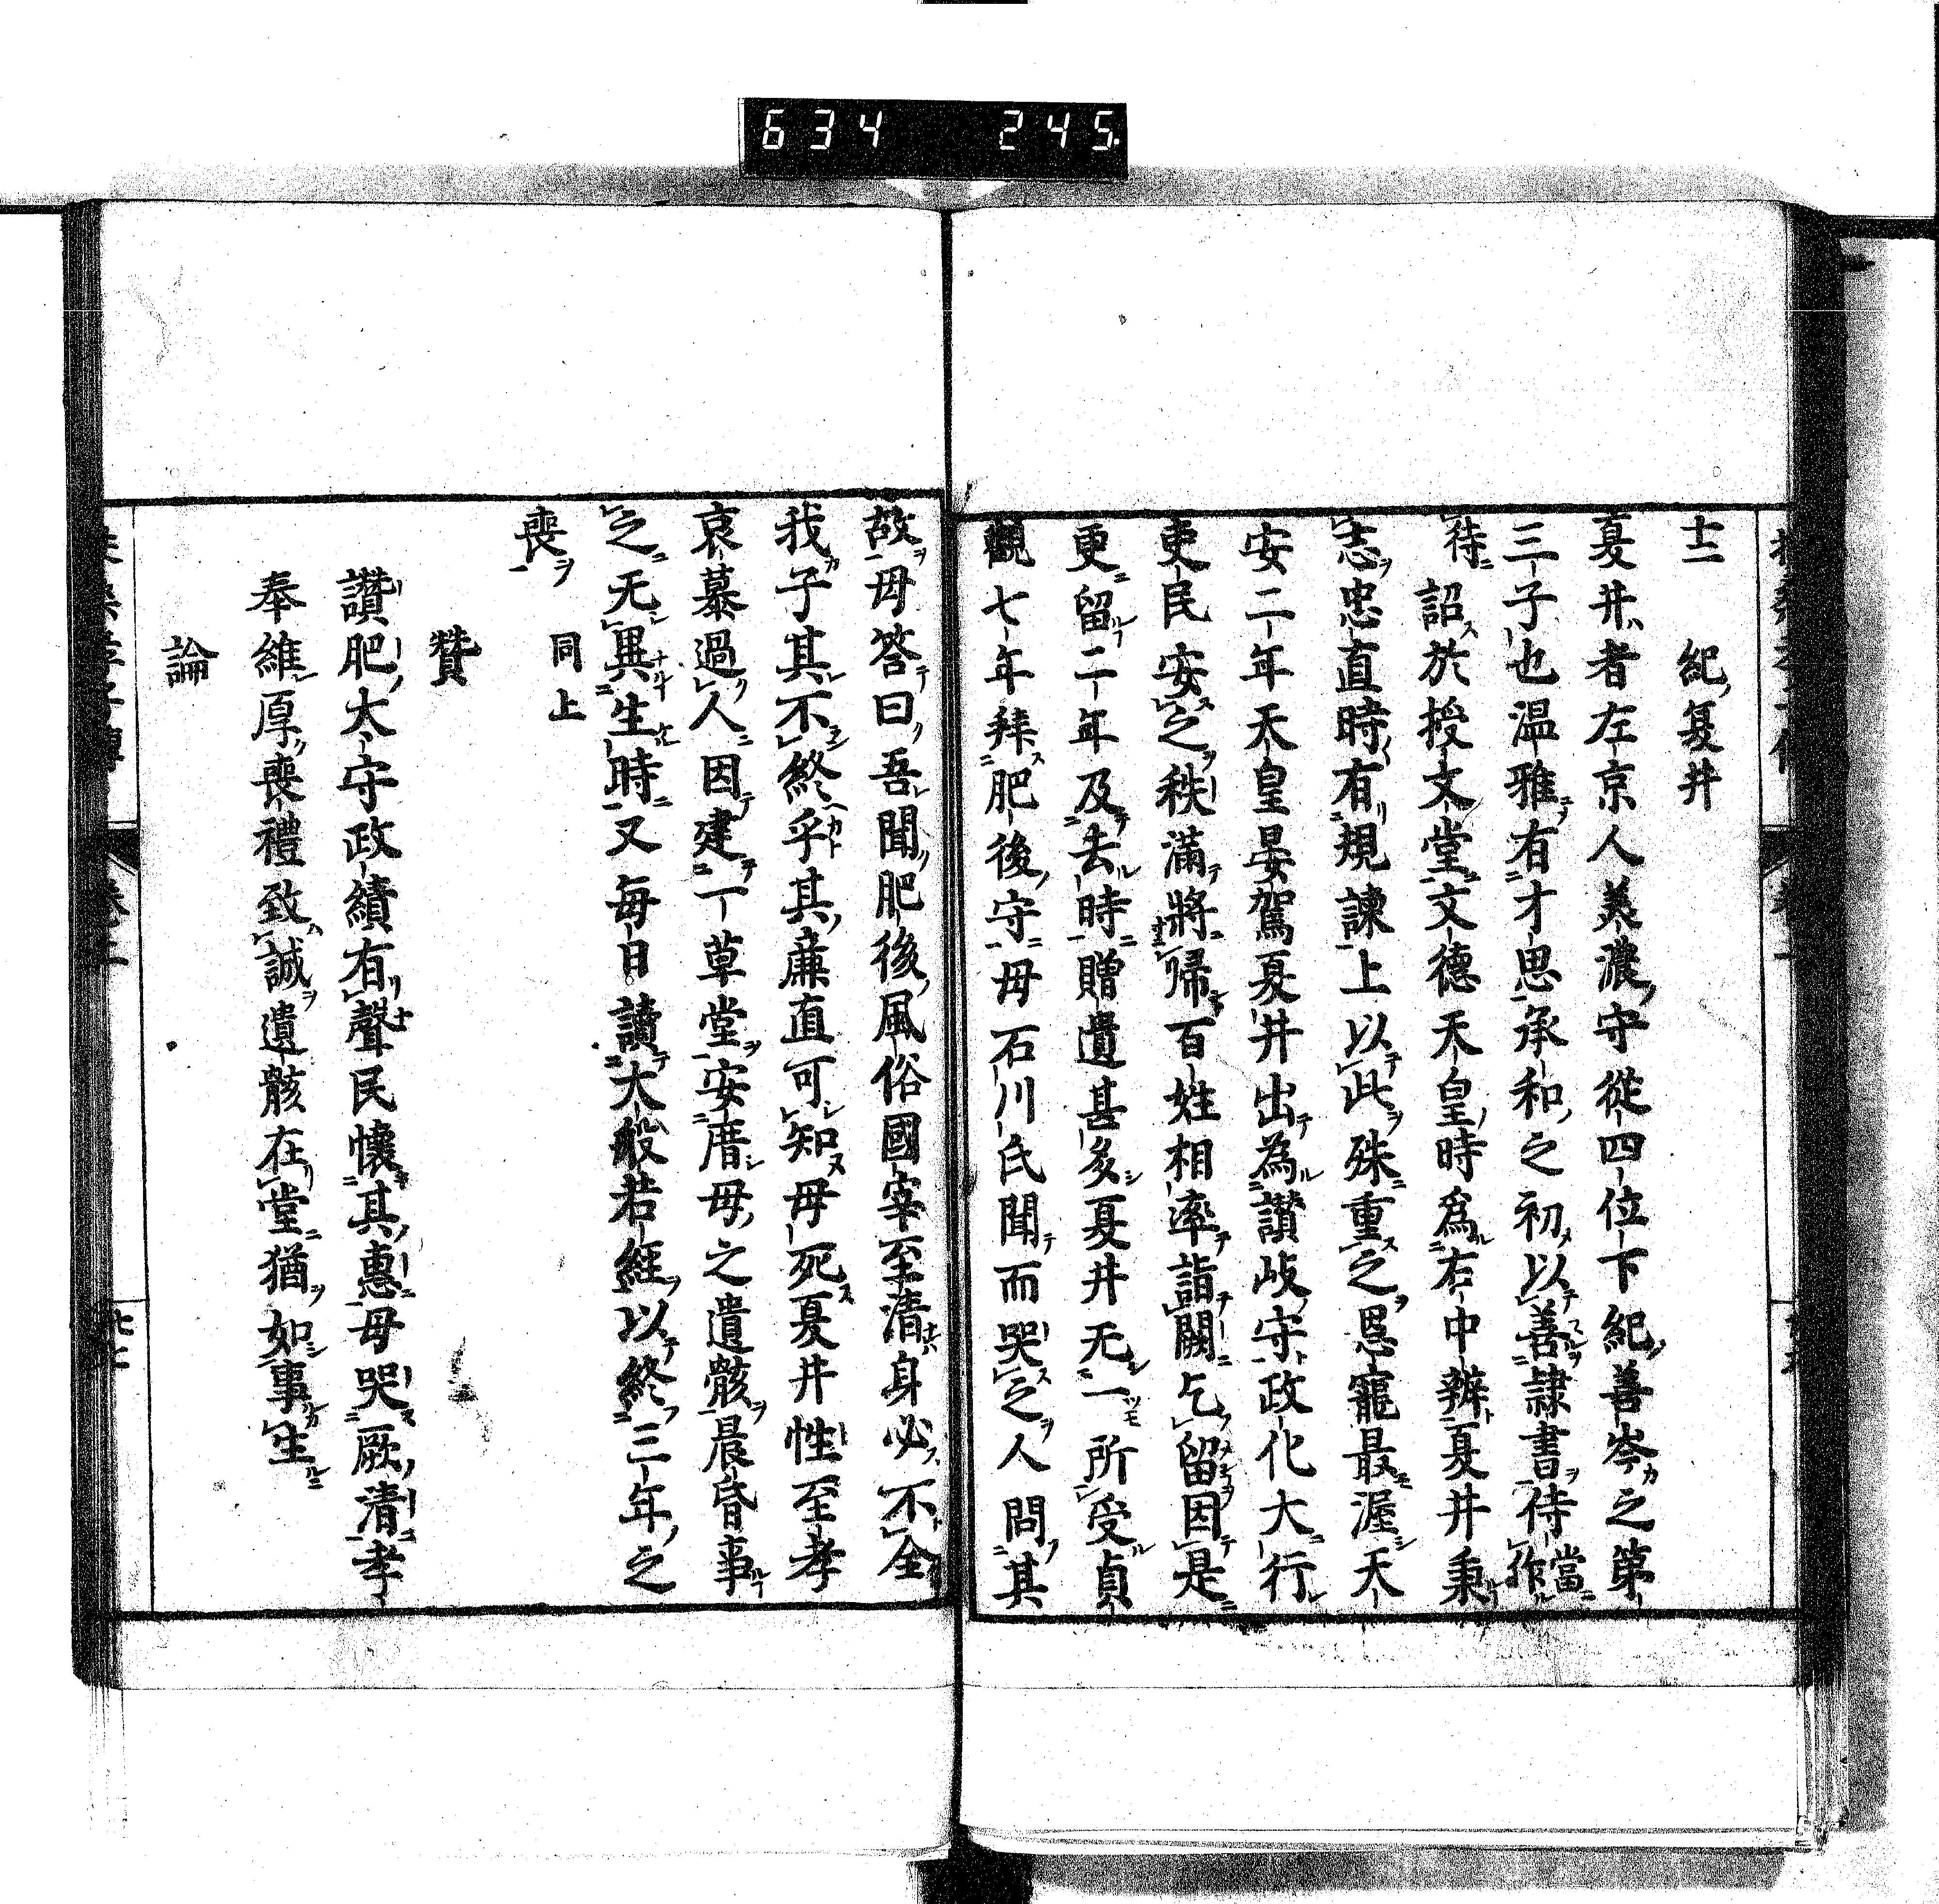 634 245
十二 紀夏井
夏井者左京人美濃守從四位下紀善岑之第
三子也温雅有才思承和之初以善隷書侍當作
待詔於授文堂文德天皇時爲右中辨夏井秉
志忠直時有規諫上以此殊重之恩寵最渥天
安二年天皇晏駕夏井出為讃岐守政化大行
吏民安之秩滿將帰百姓相率詣闕乞留因是
更留二年及去時贈遺甚多夏井无一所受貞
觀七年拜肥後守母石川氏聞而哭之人問其
故母答曰吾聞肥後風俗國宰至清身必不全
我子其不終乎其廉直可知母死夏井性至孝
哀慕過人因建一草堂安厝母之遺骸晨昏事
之无異生時又每日讀大般若経以終三年之
喪 同上
贊
讃肥太守政績有聲民懷其惠母哭厥清孝
奉維厚喪禮致誠遺骸在堂猶如事生
論